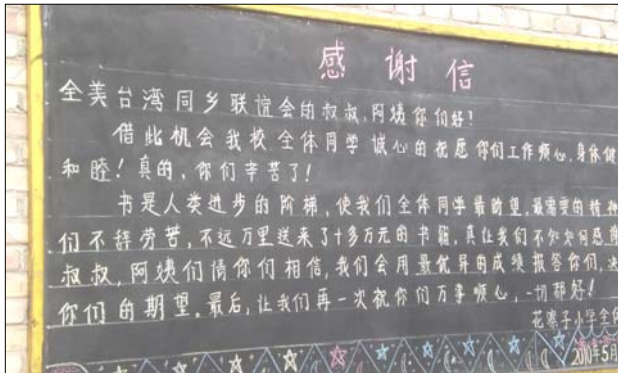 感谢信
全美台湾同乡联谊会的叔叔,阿姨你们好!
借此机会我校全体同学诚心的祝愿你们工作顺心,身体健
和睦!真的,你们辛苦了!
书是人类进步的阶梯,使我们全体同学最盼望,最需要的精神
们不辞劳苦,不远万里送来了十多万元的书籍,真让我们不知如何感谢
叔叔,阿姨们请你们相信,我们会用最优异的成绩报答你们,决
你们的期望。最后,让我们再一次祝你们万事顺心,一切都好!
花寨子小学全体
2010年5月